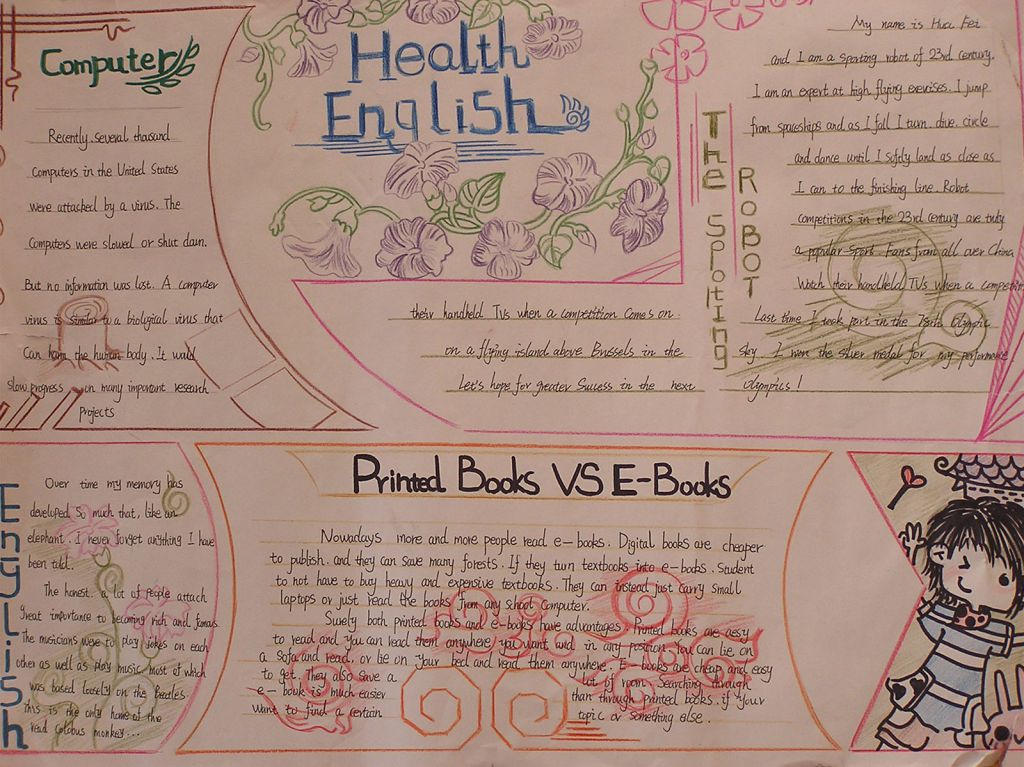 Computer
Recently. several thousand
Computers in the United States
were attacked by a virus. The
Computers were slowed or shut down.
But no information was lost. A computer
virus is similar to a biological virus that
Can harm the human body. It would
slow progress on many important research
Projects
Health
English
The Spotting
RoBoT
My name is Hua Fei
and I am a sporting robot of 23rd century.
I am an expert at high flying exercises. I jump
from spaceships and as I fall I turn. dive. circle
and dance until I softly land as close as
I can to the finishing line. Robot
competitions in the 23rd century are truly
a popular sport. Fans from all over China
Watch their handheld TVs when a competition
Last time I took part in the Olympic
sky. I won the silver medal for my performance
their handheld TVs when a competition comes on
on a flying island above Brussels in the
Let's hope for greater Success in the next Olympics!
English
Over time my memory has
developed So much that, like an
elephant. I never forget anything I have
been told.
The honest. a lot of people attach
Great importance to becoming rich and famous
The musicians were to play jokes on each
other as well as play music. most of which
was based loosely on the Beatles.
this is the only home of the
read Colobus monkey...
Printed Books VS E-Books
Nowadays more and more people read e-books. Digital books are cheaper
to publish. and they can save many forests. If they turn textbooks into e-books. Student
to not have to buy heavy and expensive textbooks. They can instead just carry small
laptops or just read the books from any school Computer.
Surely both printed books and e-books have advantages. Printed books are aesy
to read and you can read them anywhere you want and in any position. You can lie on
a Sofa and read. or lie on your bed and read them anywhere. E-books are cheap and easy
to get. They also save a lot of room. Searching through
e-book is much easier than through printed books. if your
want to find a certain topic or something else.